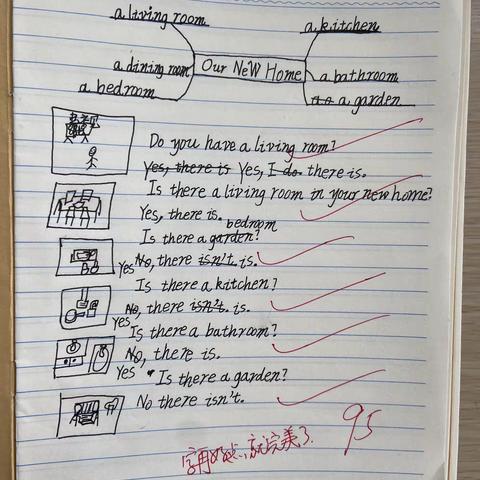 a living room
a kitchen
a dining room
Our NeW Home
a bathroom
a bedroom
a garden
Do you have a living room?
Yes, there is Yes, I do. there is.
Is there a living room in your new home?
Yes, there is.
bedroom
Is there a garden?
Yes No, there isn't. is.
Is there a kitchen?
Yes No, there isn't. is.
Is there a bathroom?
No, there is.
Yes
Is there a garden?
No there isn't.
95
字再好点,就完美了.